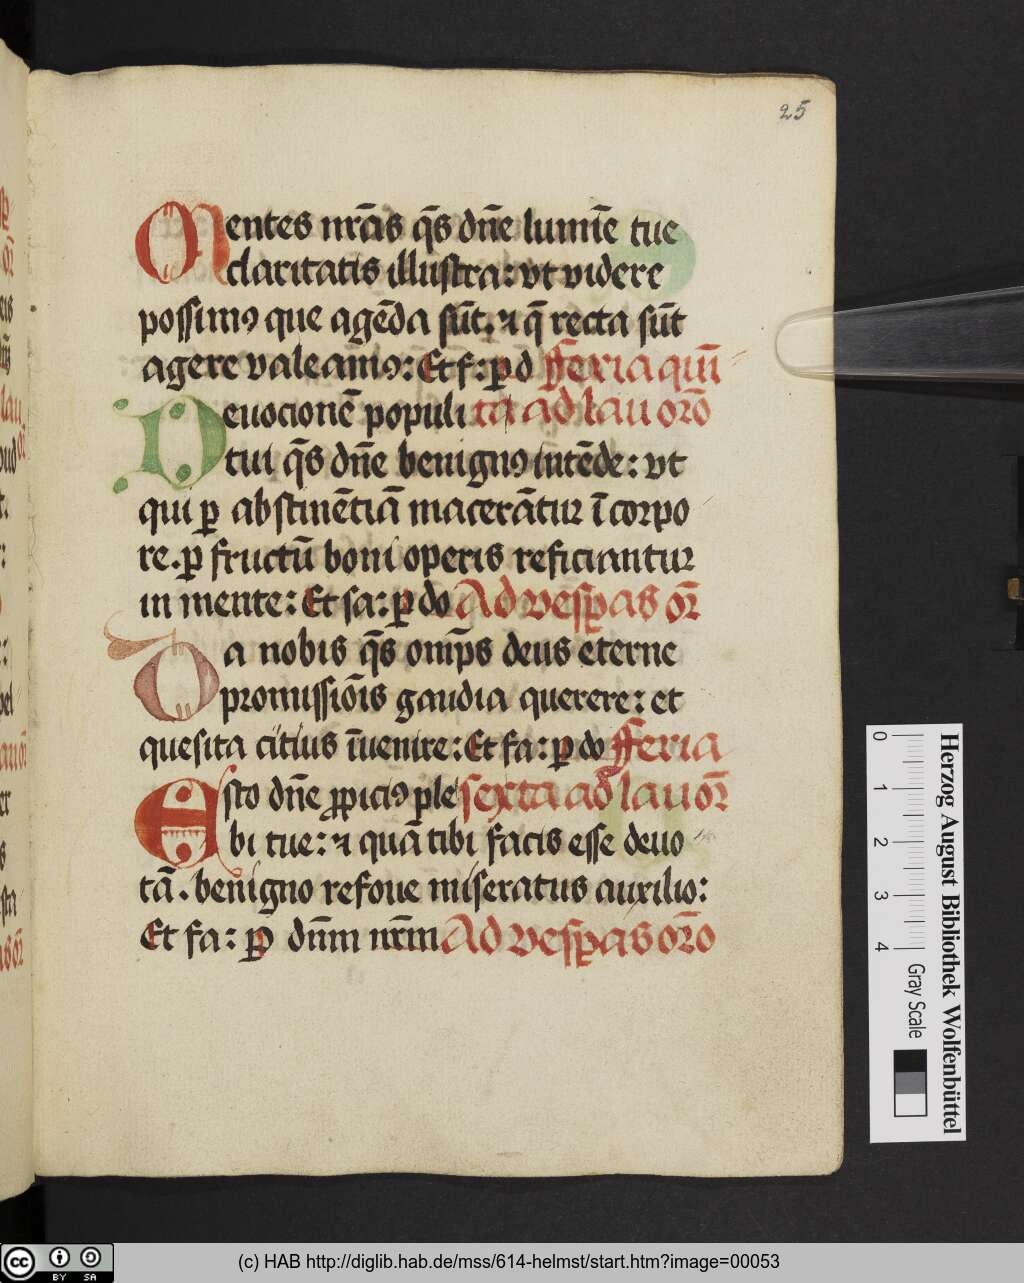 25
Mentes nr̄as q̄s dn̄e lumīe tue
claritatis illustra: vt videre
possimꝯ que agēda sūt. ⁊ q̄ recta sūt
agere valeamꝯ: Et f: ꝑ d fferia qui
Deuocionē populi ta ad lau oro
tui q̄s dn̄e benignꝯ intēde: vt
qui ꝑ abstinētiā macerātur ī corpo
re. ꝑ fructū boni operis reficiantur
in mente: Et fa: ꝑ do Ad vesꝑas or̄
Da nobis q̄s omp̄s deus eterne
promissiōis gaudia querere: et
quesita citius īuenire: Et fa: ꝑ do fferia
Esto dn̄e ꝓpiciꝯ ple sexta ad lau or̄
bi tue: ⁊ quā tibi facis esse deuo
tā. benigno refoue miseratus auxilio:
Et fa: ꝑ dn̄m nr̄m Ad vesꝑas oro
0 1 2 3 4
Herzog August Bibliothek Wolfenbüttel
Gray Scale
cc BY SA
(c) HAB http://diglib.hab.de/mss/614-helmst/start.htm?image=00053